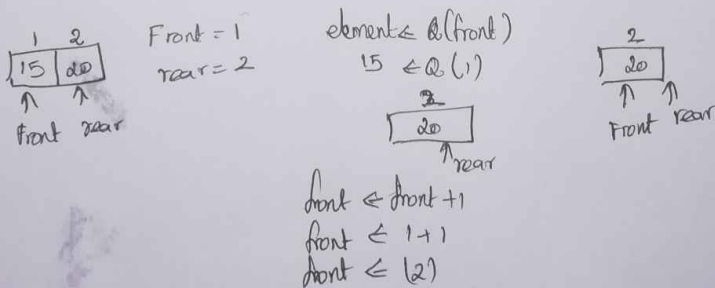 1 2
15 20
Front rear
Front = 1
rear = 2
element ← Q(front)
15 ← Q(1)
2
20
rear
front ← front + 1
front ← 1 + 1
front ← (2)
2
20
Front rear